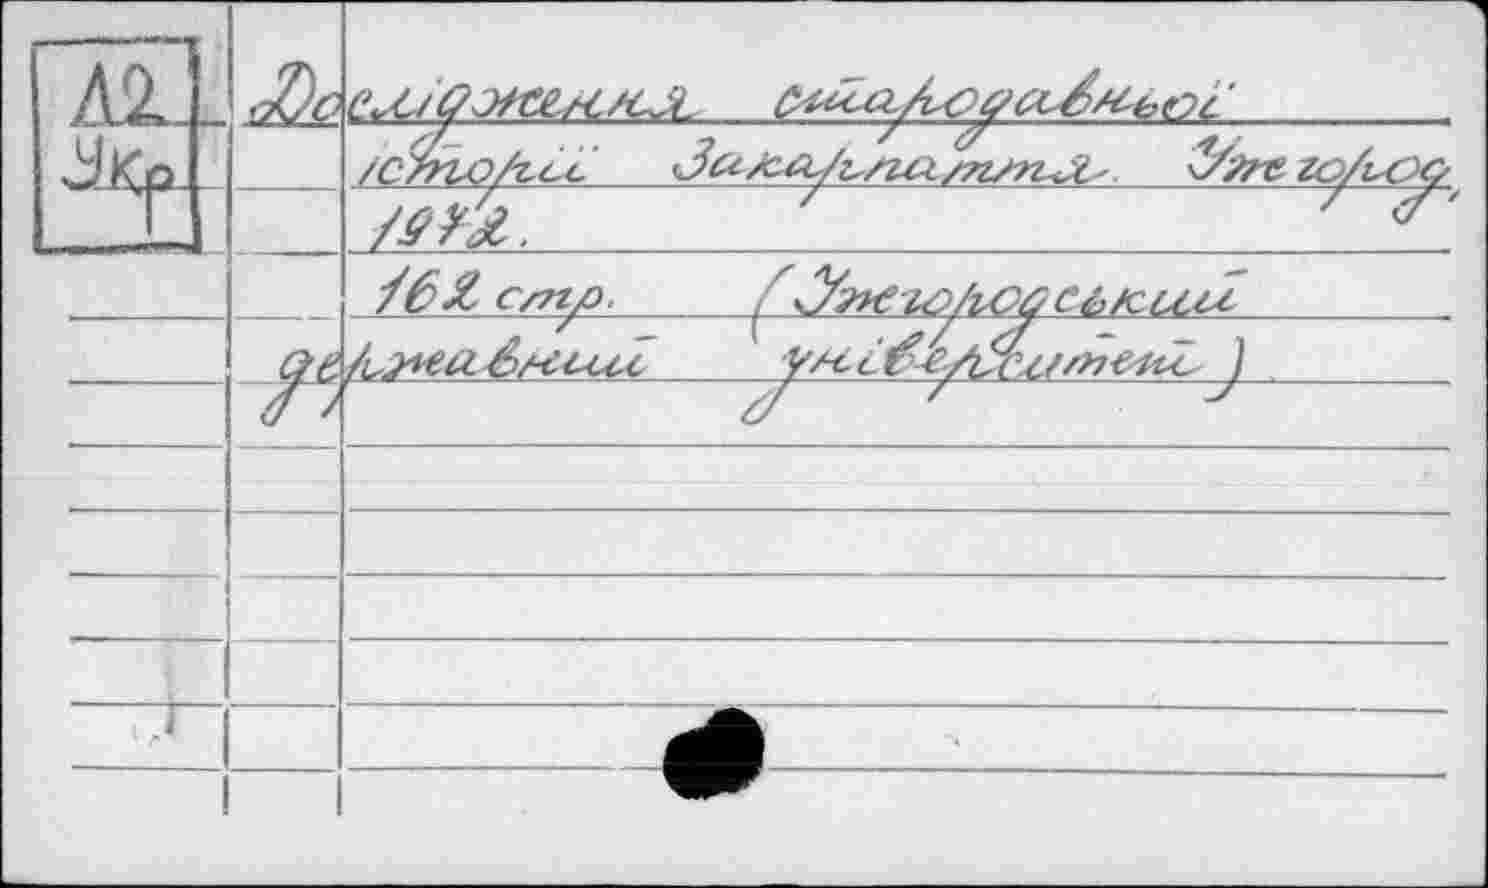 Л2
Укр
Дослідження стародавньої
історії Закарпаття. Ужгород,
1972.
162 стр. (Ужгородський
державний університет)